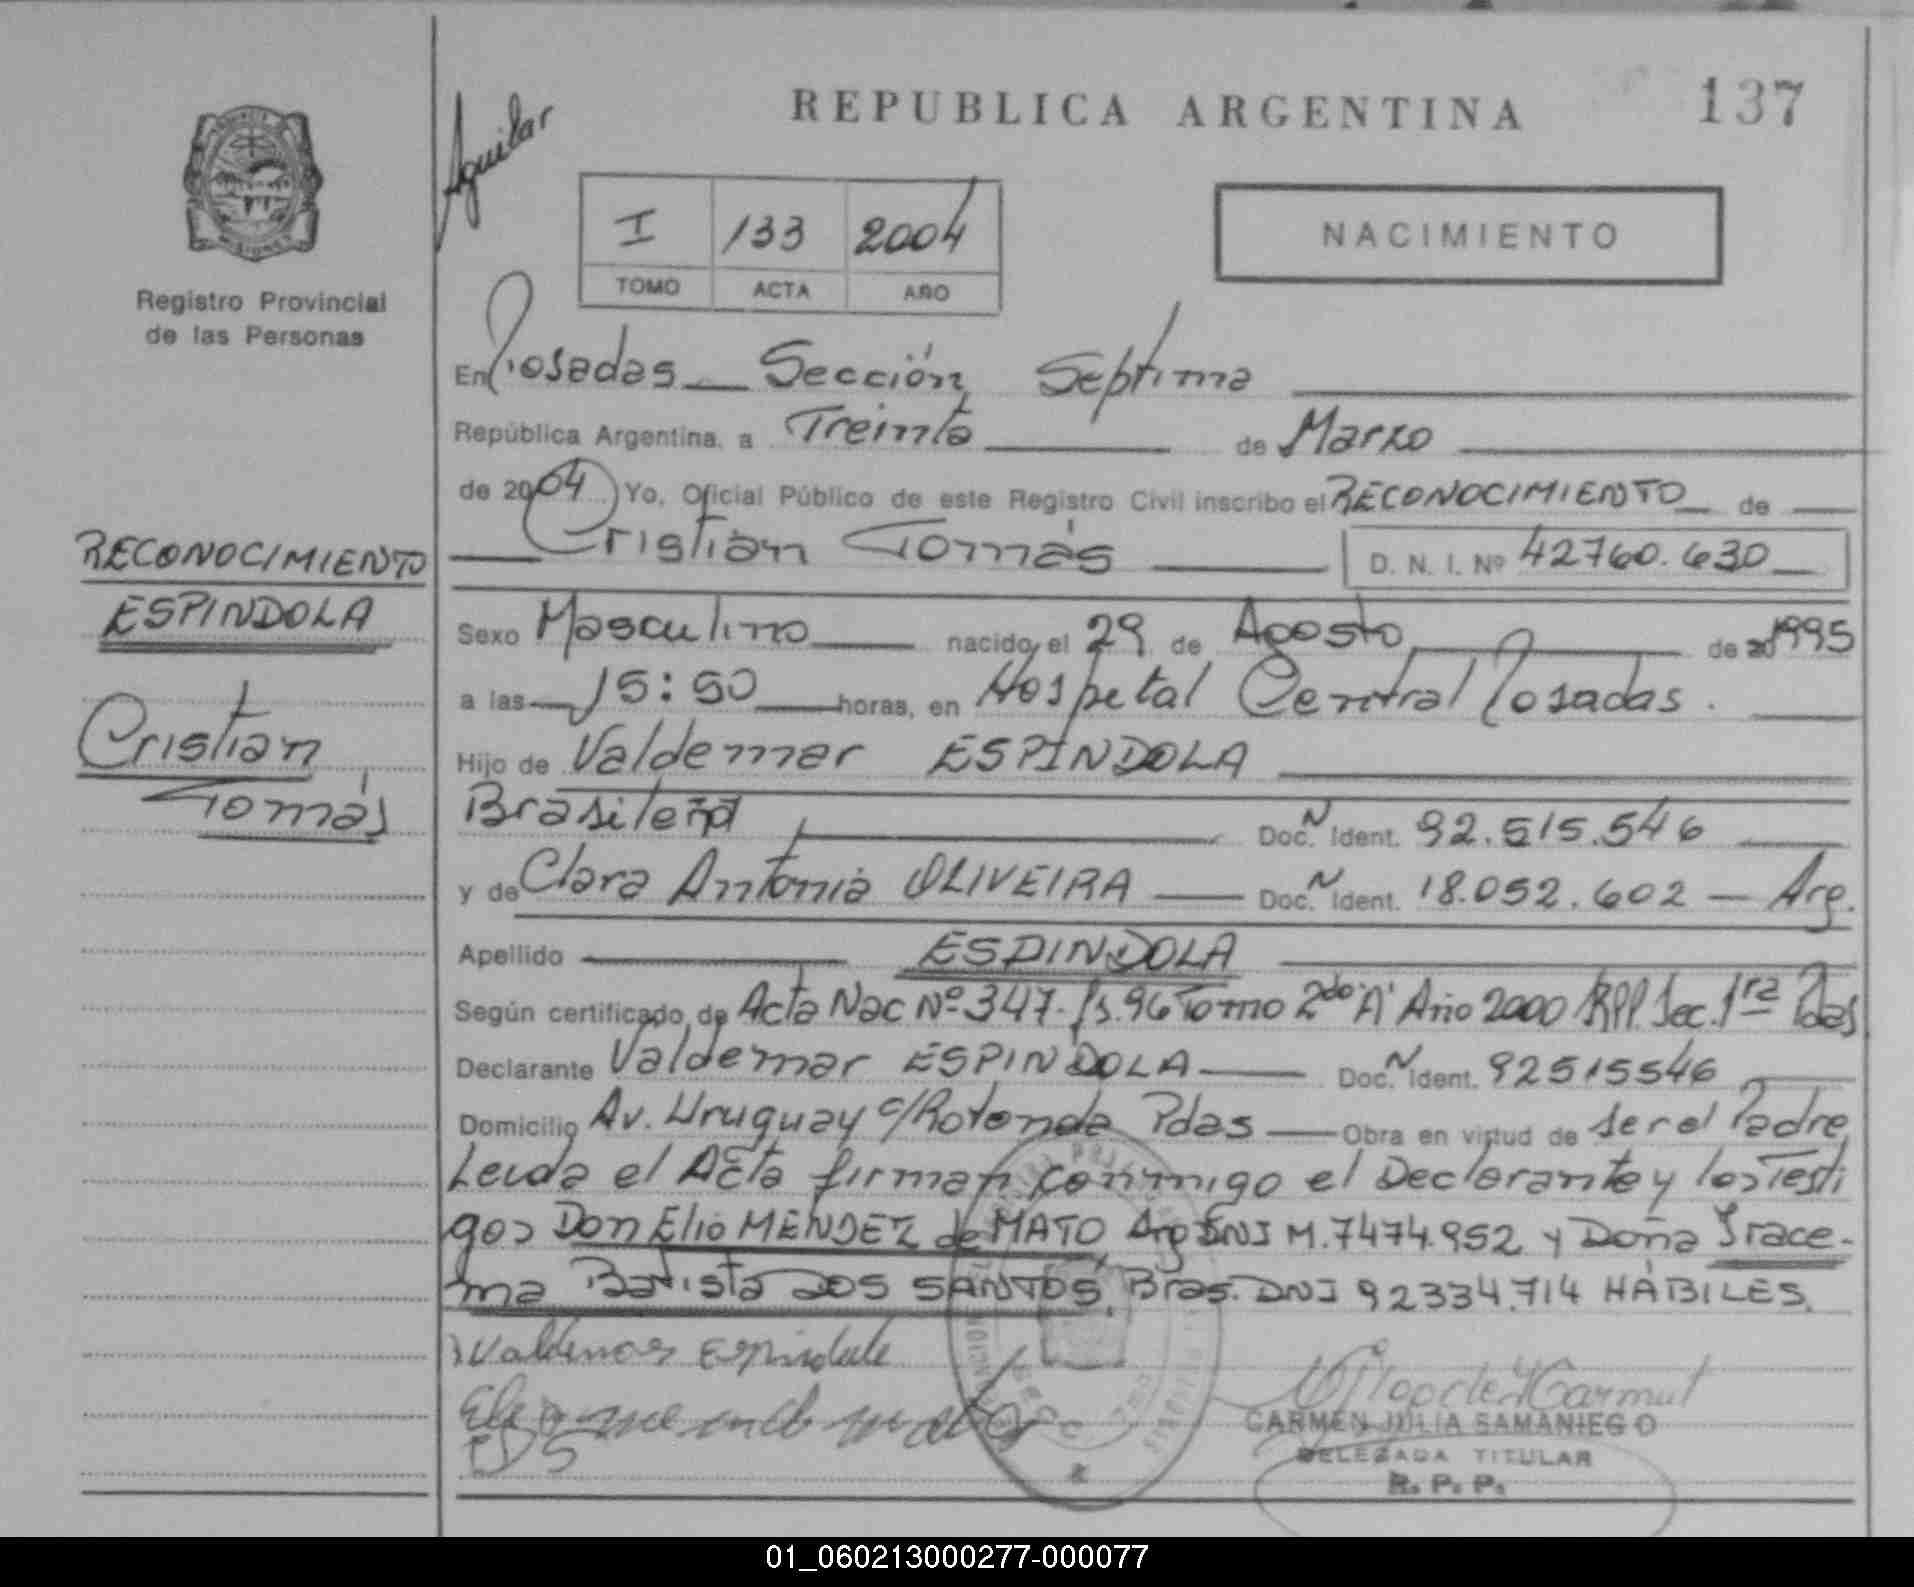 REPUBLICA ARGENTINA
137
Aguilar
I 133 2004
TOMO ACTA AÑO
NACIMIENTO
MISIONES
Registro Provincial
de las Personas
RECONOCIMIENTO
ESPINDOLA
Cristian
Tomás
En Posadas Sección Septima
República Argentina, a Treinta de Marzo
de 2004 Yo, Oficial Público de este Registro Civil inscribo el RECONOCIMIENTO de
Cristian Tomás D. N. I. Nº 42760.630
Sexo Masculino nacido el 29 de Agosto de 1995
a las 15:50 horas, en Hospital Central Posadas.
Hijo de Valdemar ESPINDOLA
Brasileño Doc. N Ident. 92.515.546
y de Clara Antonia OLIVEIRA Doc. N Ident. 18.052.602 — Arg.
Apellido ESPINDOLA
Según certificado de Acta Nac Nº 347. fs. 96 Tomo 2do "A" Año 2000 RPP. Sec. 1ra Pdas
Declarante Valdemar ESPINDOLA Doc. N Ident. 92515546
Domicilio Av. Uruguay c/Rotonda Pdas Obra en virtud de ser el Padre
Leida el Acta firman conmigo el Declarante y los Testi
gos Don Elio MENDEZ de MATO, Arg DNI M. 7474.952 y Doña Irace-
ma Batista DOS SANTOS, Bras. DNI 92334.714 HÁBILES.
Valdemar Espindola
IDS
CARMEN JULIA SAMANIEGO
DELEGADA TITULAR
R. P. P.
01_060213000277-000077